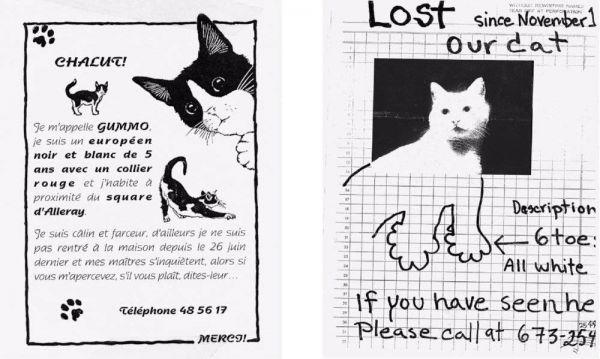 CHALUT!
Je m'appelle GUMMO,
je suis un européen
noir et blanc de 5
ans avec un collier
rouge et j'habite à
proximité du square
d'Alleray.
Je suis câlin et farceur, d'ailleurs je ne suis
pas rentré à la maison depuis le 26 juin
dernier et mes maîtres s'inquiètent, alors si
vous m'apercevez, s'il vous plaît, dites-leur...
Téléphone 48 56 17
MERC9!
LOST since November 1
our cat
Description
6 toe:
All white
If you have seen he
Please call at 673-254